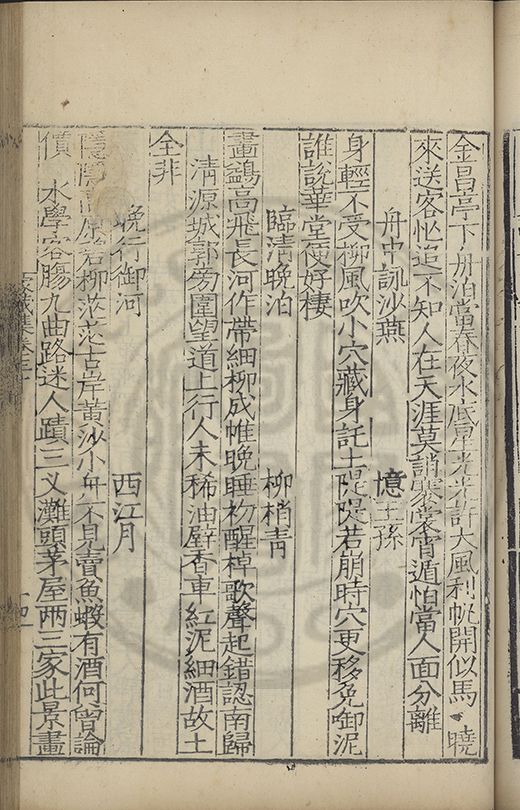 金昌亭下舟泊當春夜水底星光光許大風利帆開似馬 曉
來送客怱追不知人在天涯莫誚褰裳宵遁怕當人面分離
舟中詠沙燕 憶王孫
身輕不受柳風吹小穴藏身託土隄隄若崩時穴更移免啣泥
誰說華堂便好棲
臨清晚泊 柳梢青
畫鷁高飛長河作帶細柳成帷晚睡初醒棹歌聲起錯認南歸
清源城郭旁圍望道上行人未稀油壁香車紅泥細酒故土
全非
晚行御河 西江月
隱隱 若柳茫茫古岸黃沙小舟不見賣魚蝦有酒何曾論
價 水學客腸九曲路迷人蹟三叉灘頭茅屋兩三家此景畫